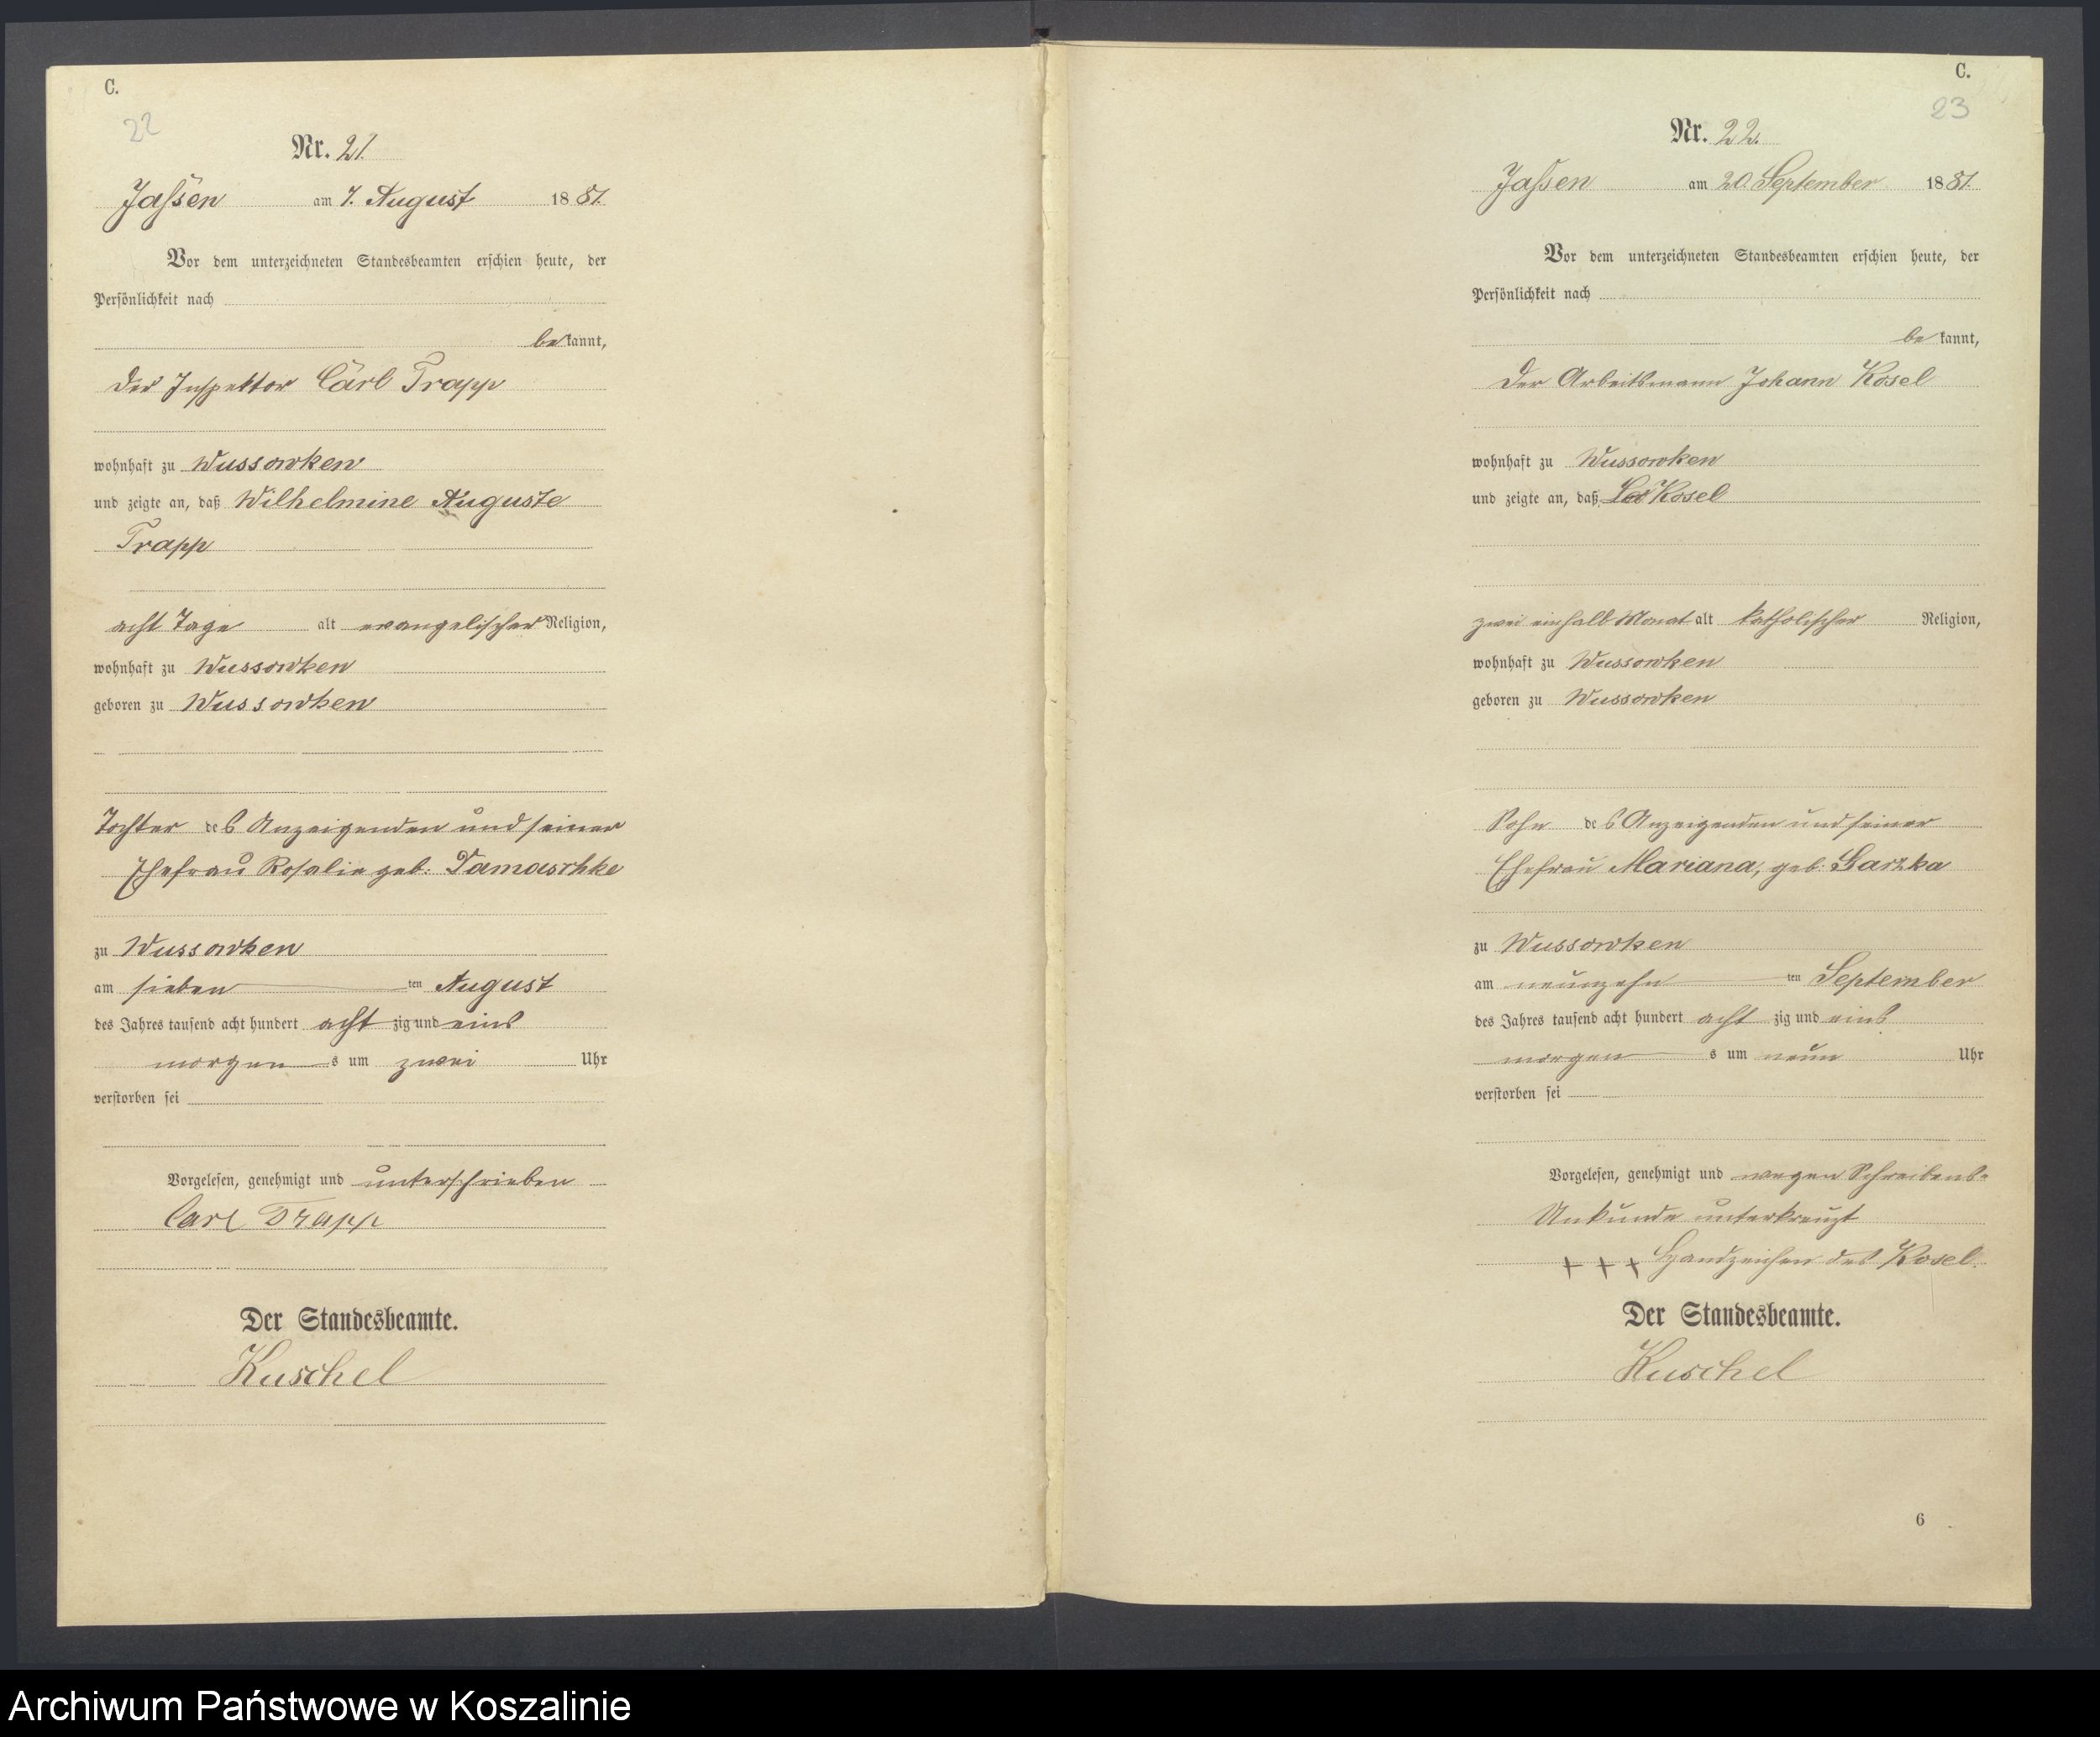 C.
22
Nr. 21.
Jassen am 7. August 1881.
Vor dem unterzeichneten Standesbeamten erschien heute, der
Persönlichkeit nach
bekannt,
der Inspektor Carl Trapp
wohnhaft zu Wussowken
und zeigte an, daß Wilhelmine Auguste
Trapp
acht Tage alt evangelischer Religion,
wohnhaft zu Wussowken
geboren zu Wussowken
Tochter des Anzeigenden und seiner
Ehefrau Rosalie geb: Damaschke
zu Wussowken
am sieben ten August
des Jahres tausend acht hundert acht zig und eins
morgen s um zwei Uhr
verstorben sei
Vorgelesen, genehmigt und unterschrieben
Carl Trapp
Der Standesbeamte.
Kuschel
C.
23
Nr. 22.
Jassen am 20. September 1881.
Vor dem unterzeichneten Standesbeamten erschien heute, der
Persönlichkeit nach
bekannt,
der Arbeitsmann Johann Kosel
wohnhaft zu Wussowken
und zeigte an, daß Leo Kosel
zwei einhalb Monat alt katholischer Religion,
wohnhaft zu Wussowken
geboren zu Wussowken
Sohn des Anzeigenden und seiner
Ehefrau Mariana, geb:
zu Wussowken
am neunzehn ten September
des Jahres tausend acht hundert acht zig und eins
morgen s um neun Uhr
verstorben sei
Vorgelesen, genehmigt und wegen Schreibens-
Unkunde unterkreuzt
+ + + Handzeichen des Kosel.
Der Standesbeamte.
Kuschel
6
Archiwum Państwowe w Koszalinie